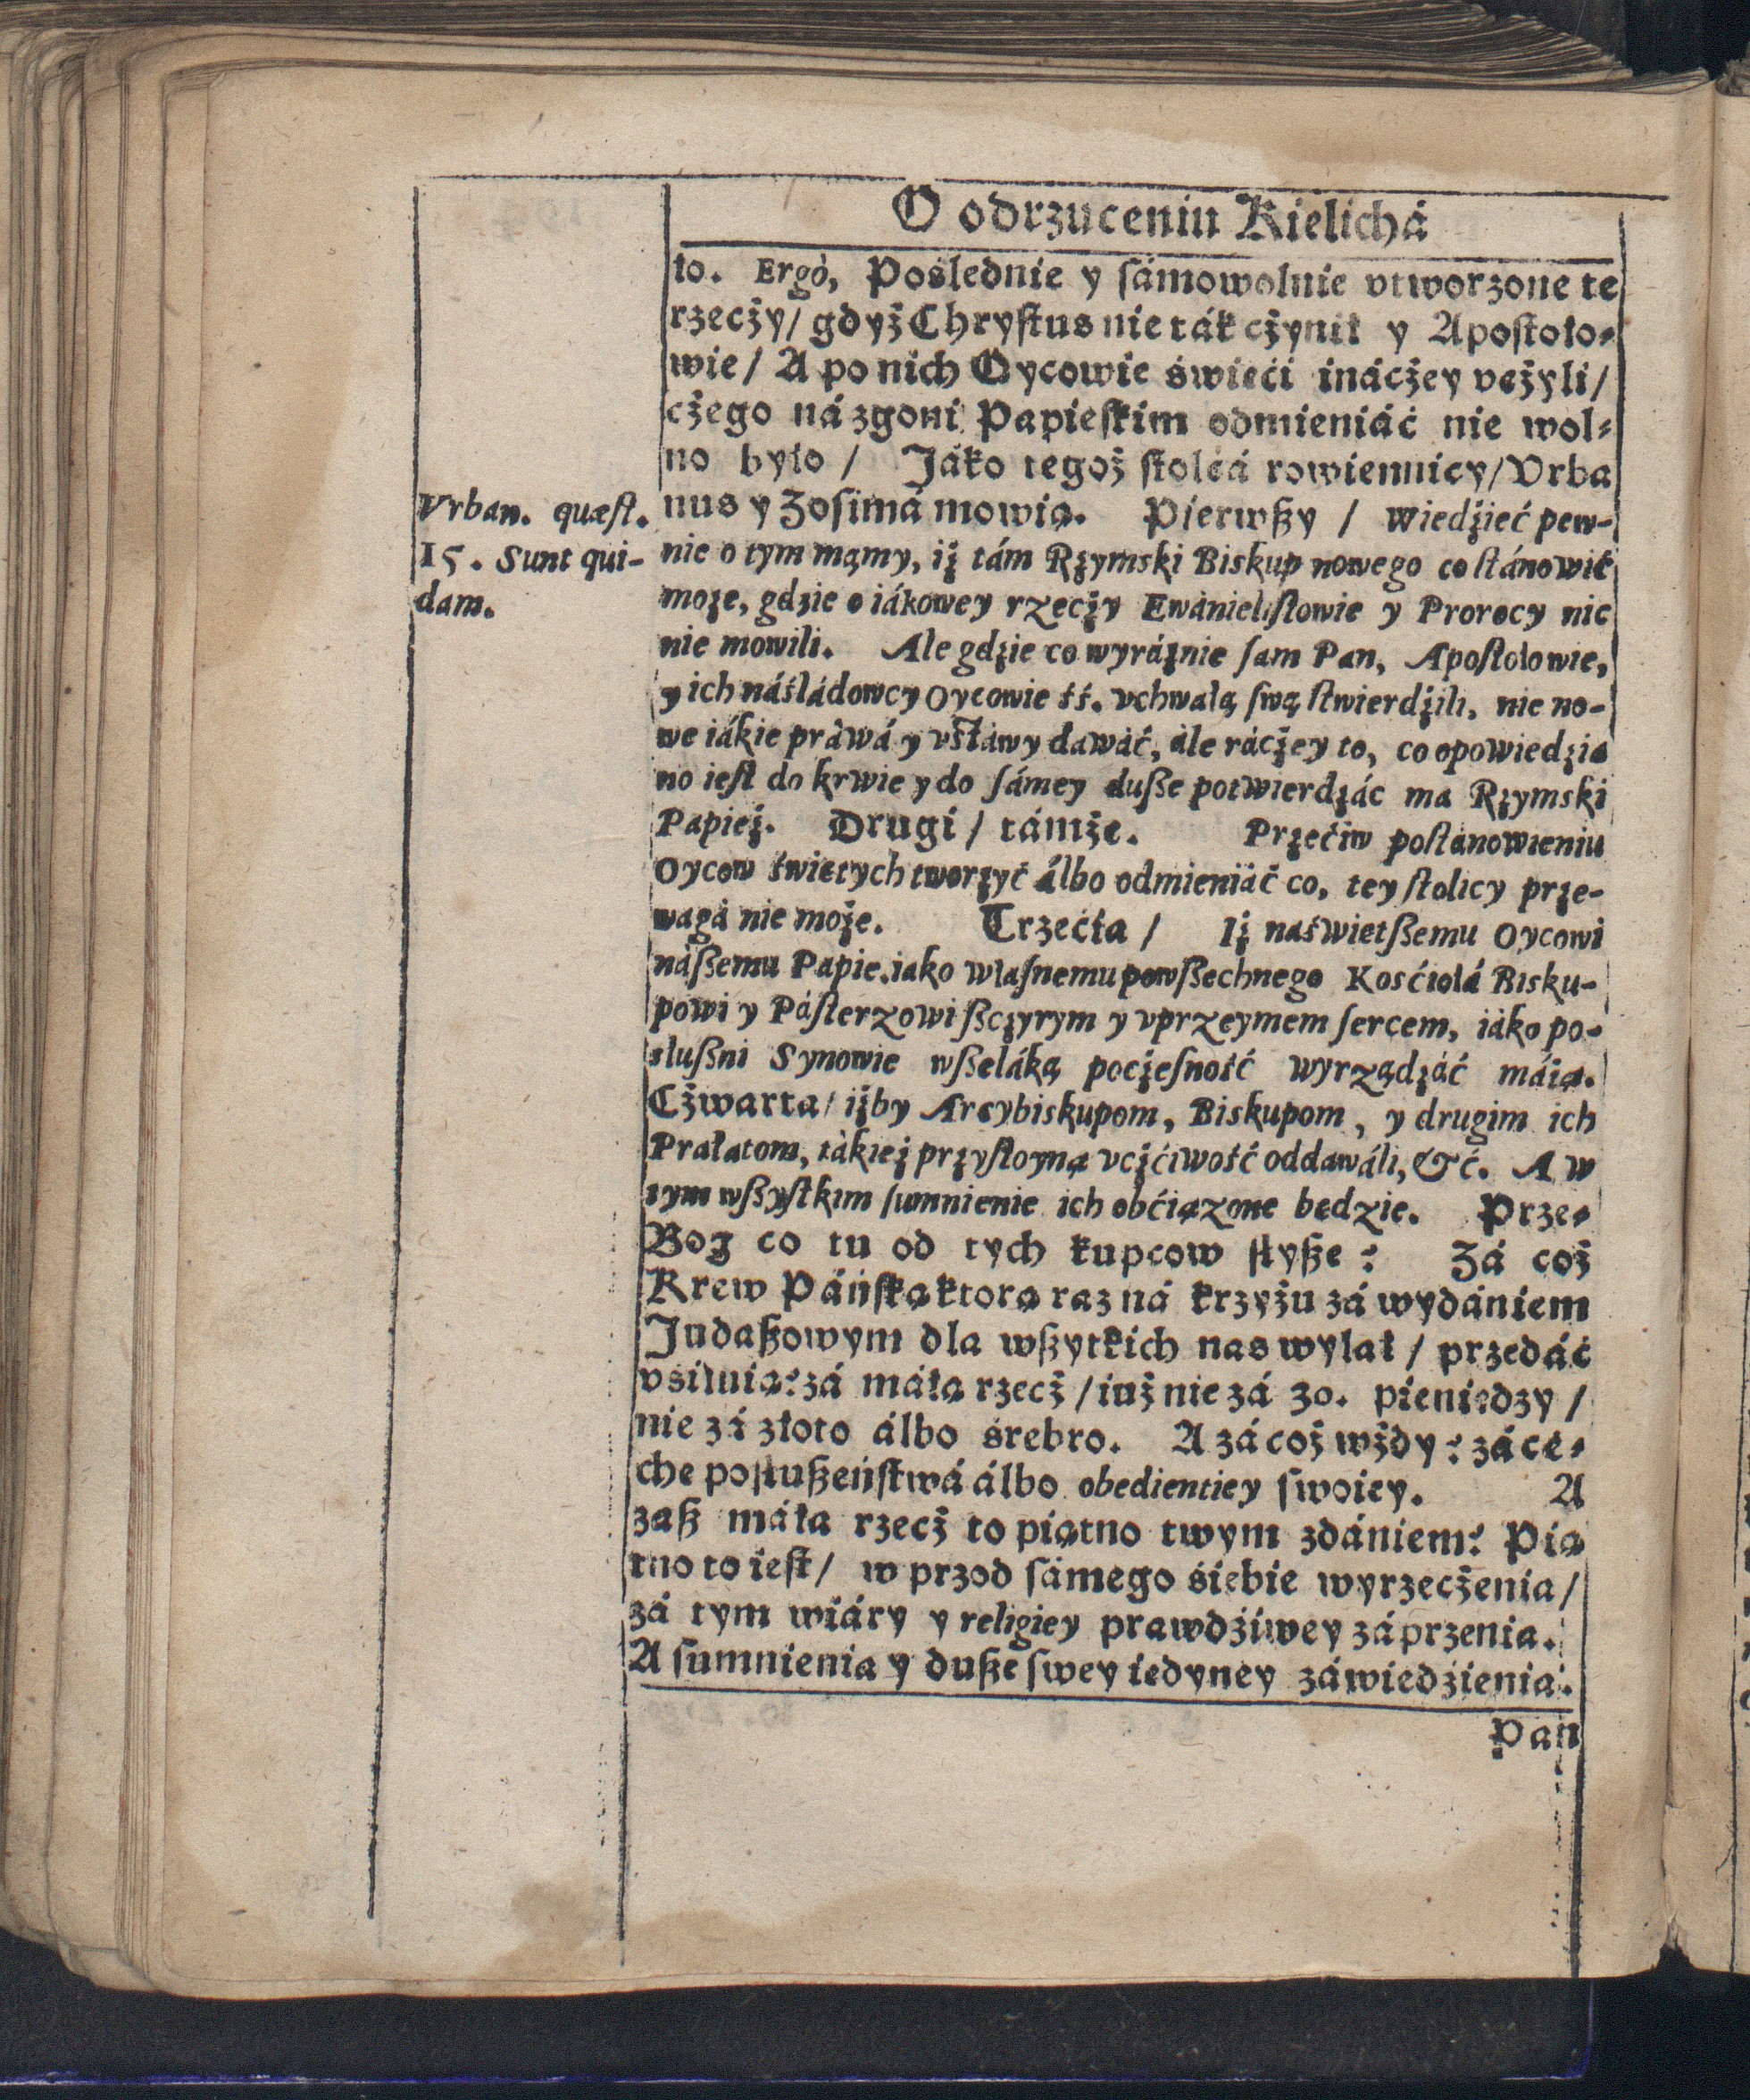 O odrzuceniu Kielichá
ło. Ergò, Poślednie y sámowolnie vtworzone te
rzecży/ gdyż Chrystus nie ták cżynił y Apostoło-
wie/ A po nich Oycowie świeći inácżey vcżyli/
cżego ná zgoni Papieskim odmieniáć nie wol-
no było / Jáko tegoż stolcá rowiennicy/ Vrba
nus y Zosimá mowią. Pierwßy / Wiedżieć pew-
Vrban. quæst.
15. Sunt qui-
dam.
nie o tym mamy, iż tám Rzymski Biskup nowego co stánowić
może, gdzie o iákowey rzecży Ewánielistowie y Prorocy nic
nie mowili. Ale gdzie co wyráżnie sam Pan, Apostołowie,
y ich náśládowcy Oycowie śś. vchwałą swą stwierdżili, nie no-
we iákie práwá y vstáwy dawáć, ále rácżey to, co opowiedzia
no iest do krwie y do sámey duße potwierdzác ma Rzymski
Papież. Drugi / támże. Przećiw postánowieniu
Oycow świetych tworzyć álbo odmieniáć co, tey stolicy prze-
waga nie może. Trzećia / Iż naświetßemu Oycowi
náßemu Papie. iako własnemu powßechnego Kośćiołá Bisku-
powi y Pásterzowi ßcżyrym y vprzeymem sercem, iáko po-
słußni Synowie wßeláką pocżesność wyrządzáć máią.
Cżwarta/ iżby Arcybiskupom, Biskupom, y drugim ich
Prałatom, tákież przystoyną vcżćiwość oddawáli, &ć. A w
tym wßystkim sumnienie ich obćiązone będzie. Prze-
Bog co tu od tych kupcow słyße? Zá coż
Krew Páńską ktorą raz ná krzyżu zá wydániem
Judaßowym dla wßytkich nas wylał / przedáć
vśiłuią? zá máłą rzecż / iuż nie zá 30. pieniędzy /
nie zá złoto álbo śrebro. A zá coż wżdy? zá ce-
che posłußeństwá álbo obedientiey swoiey. A
zaß máła rzecż to piątno twym zdániem? Pią
tno to iest/ w przod sámego śiebie wyrzecżenia/
zá tym wiáry y religiey prawdżiwey záprzenia.
A sumnienia y duße swey iedyney záwiedżienia.
Pan